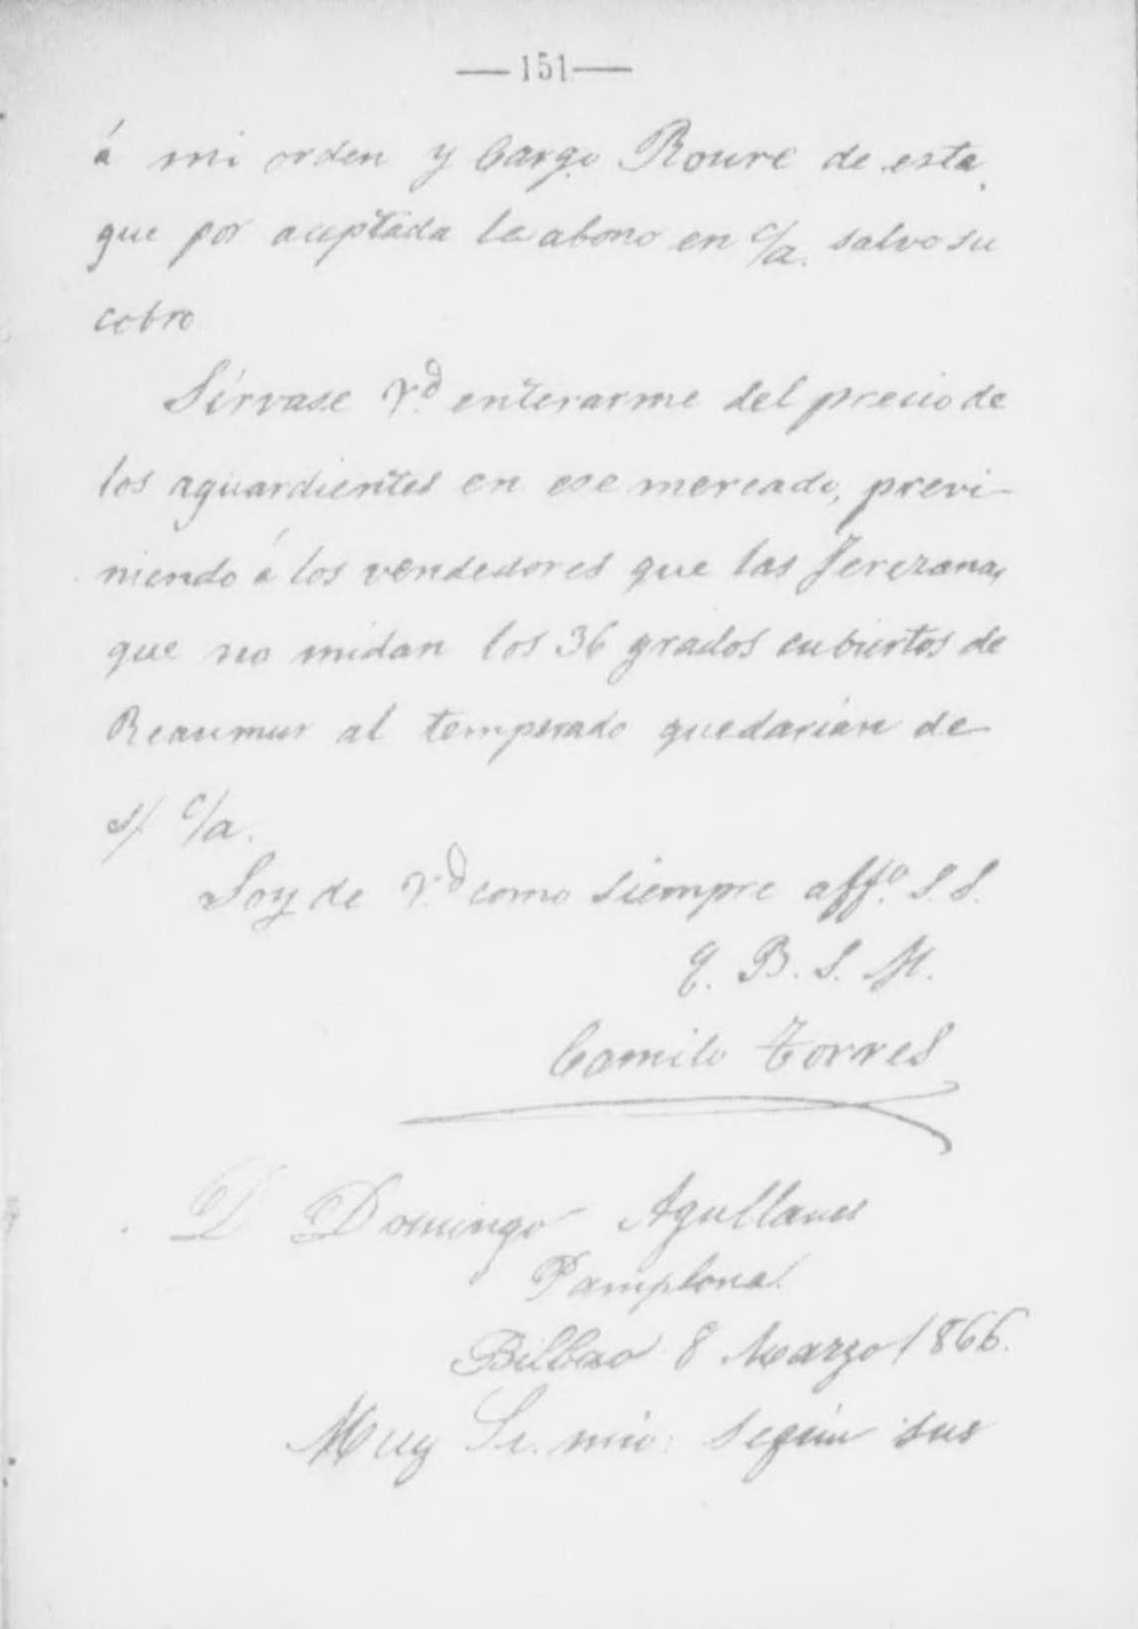 —151—
á mi orden y Cargo Roure de esta,
que por aceptada le abono en c/a. salvo su
cobro
Sírvase V.d enterarme del precio de
los aguardientes en ese mercado, previ-
niendo á los vendedores que las Jerezanas
que no midan los 36 grados cubiertos de
Reaumur al temperado quedarían de
s/ c/a.
Soy de V.d como siempre aff.o S. S.
Q. B. S. M.
Camilo Torres
D. Domingo Agullanes
Pamplona
Bilbao 8 Marzo 1866.
Muy Sr. mío: Según sus